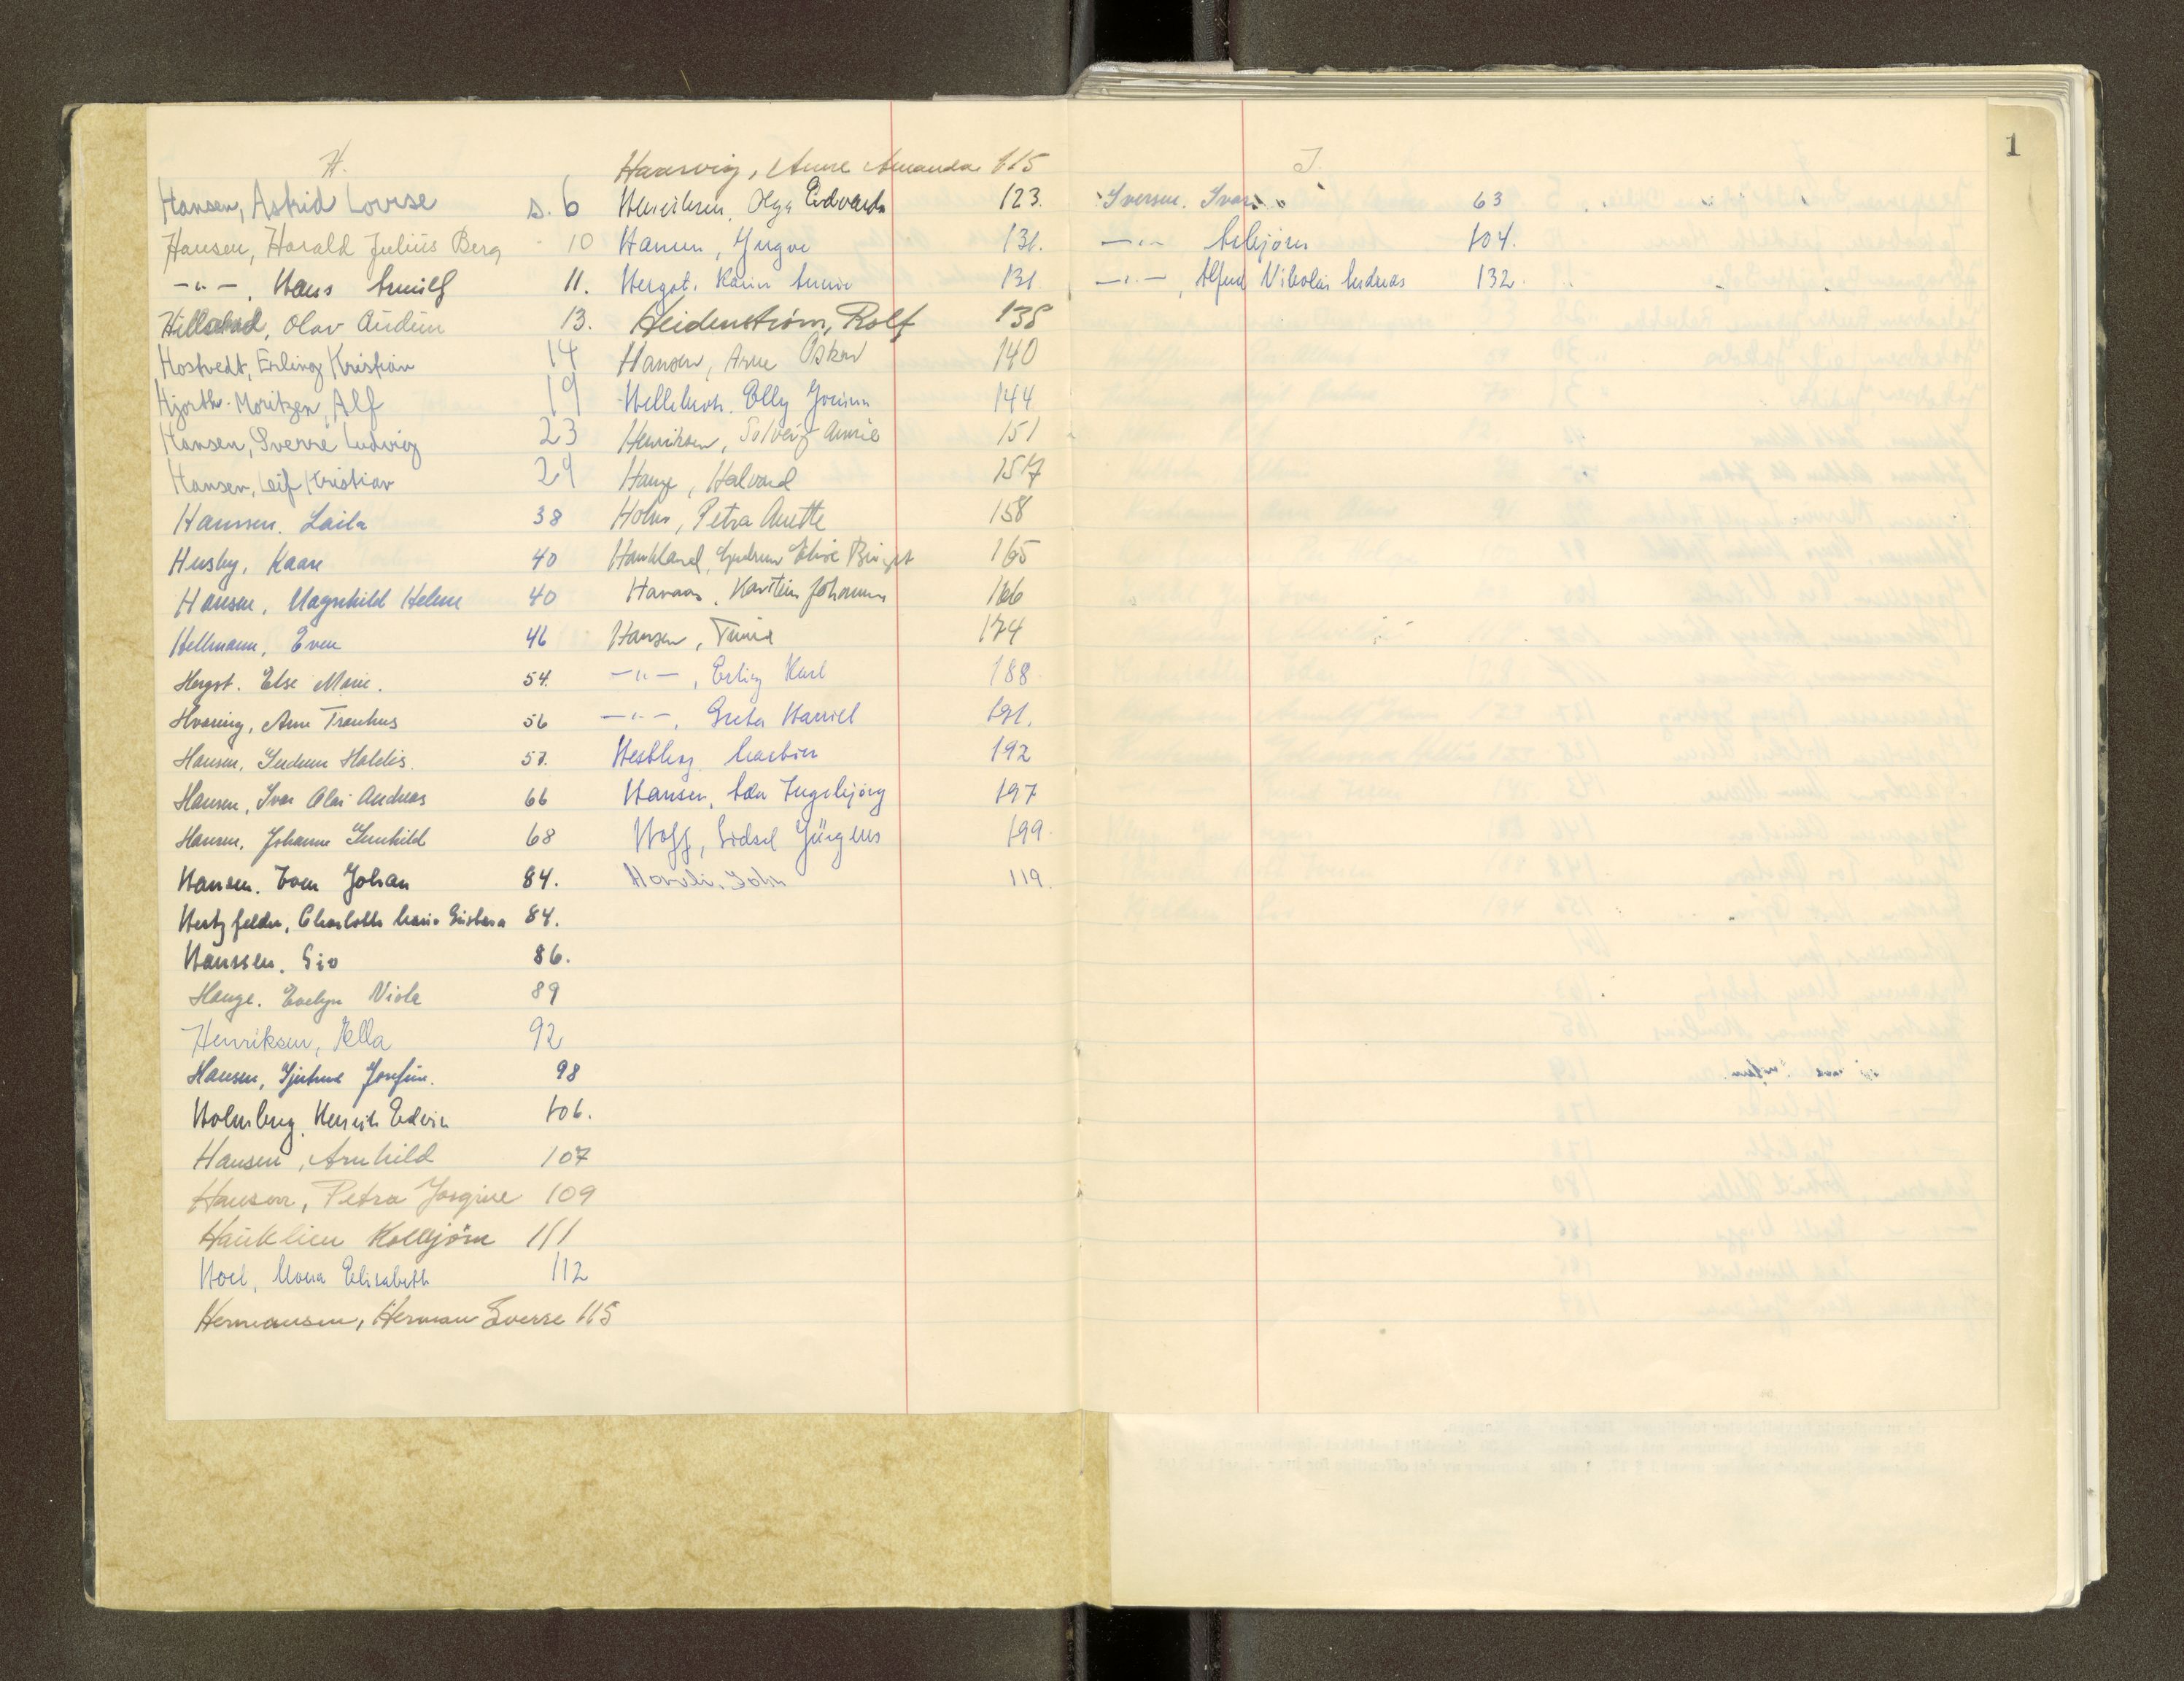 H.
Hansen, Astrid Lovise s. 6
Hansen, Harald Julius Berg - 10
-"-, Hans Arnulf 11.
Hillestad, Olav Audun 13.
Hostvedt, Erling Kristian 14
Hjorth-Moritzen, Alf 19
Hansen, Sverre Ludvig 23
Hansen, Leif Kristian 29
Hanssen. Laila 38
Husby, Kaare 40
Hansen, Magnhild Helene 40
Hellmann, Even 46
Hergot. Else Marie. 54.
Hvaring, Arne 56
Hansen, Gudrun Haldis. 57.
Hansen, Ivar Olai Andreas 66
Hansen, Johanne Gunhild 68
Hansen. Even Johan 84.
Hertzfelder, Charlotte Maria 84.
Hanssen. Siv 86.
Hauge. Evelyn Viola 89
Henriksen, Ella 92
Hansen, Gjertrud Josefine. 98
Holmberg, Henrik Edvin 106.
Hansen, Arnhild 107
Hansen, Petra Jorgine 109
Hauklien Kolbjörn 111
Hoel, Mona Elisabeth 112
Hermansen, Herman Sverre 115
Haarsvig, Anne Amanda 115
Henriksen, Olga Edvarda 123.
Hansen, Yngve 131.
Hergot. Karin Annie 131
Heidenström, Rolf 138
Hansen, Arne Oskar 140
Hellekrok. Elly 144
Henriksen, Solveig Annie 151
Haug, Halvard 157
Holm, Petra Anette 158
Haukland, Gudrun Elise 165
Havaas, Karsten Johannes 166
Hansen, 174
-"-, Erling Karl 188
-"-, Greta Harriet 191.
Hestberg. 192
Hansen, Ada Ingebjörg 197
Hoff, Sidsel Jürgens 199.
Hovsli. John 119.
I.
Iversen. Ivar 63
-"- Asbjörn 104.
-"-, Alfred Nikolai Andreas 132.
1